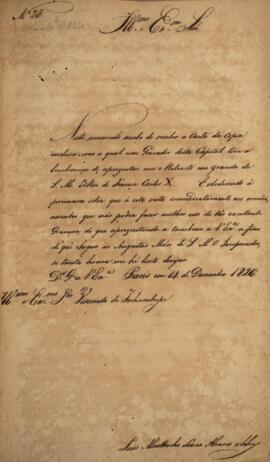 N.º 28.
Ill.mo e Ex.mo Snr.
Neste momento acabo de receber a Carta da Copia
incluza, com a qual um Gravador desta Capital, teve a
lembrança de apresentar-me o Retracto em grande de
S. M. ElRei de França Carlos X. E cedendo á
primeira idea que á este visto immediatamente me occorreo,
assentei que não podia fazer melhor uso de tão excellente
Gravura, do que apresentando-a tambem a V. Ex.ª a fim
de que chegue ás Augustas Mãos de S. M. O Imperador,
se tanta honra me hé licito desejar.
D.s G.e a V. Ex.ª Paris em 14 de Dezembro 1826
Ill.mo e Ex.mo Snr. Visconde de Inhambupe
Luis Moutinho Lima Alvares e Silva